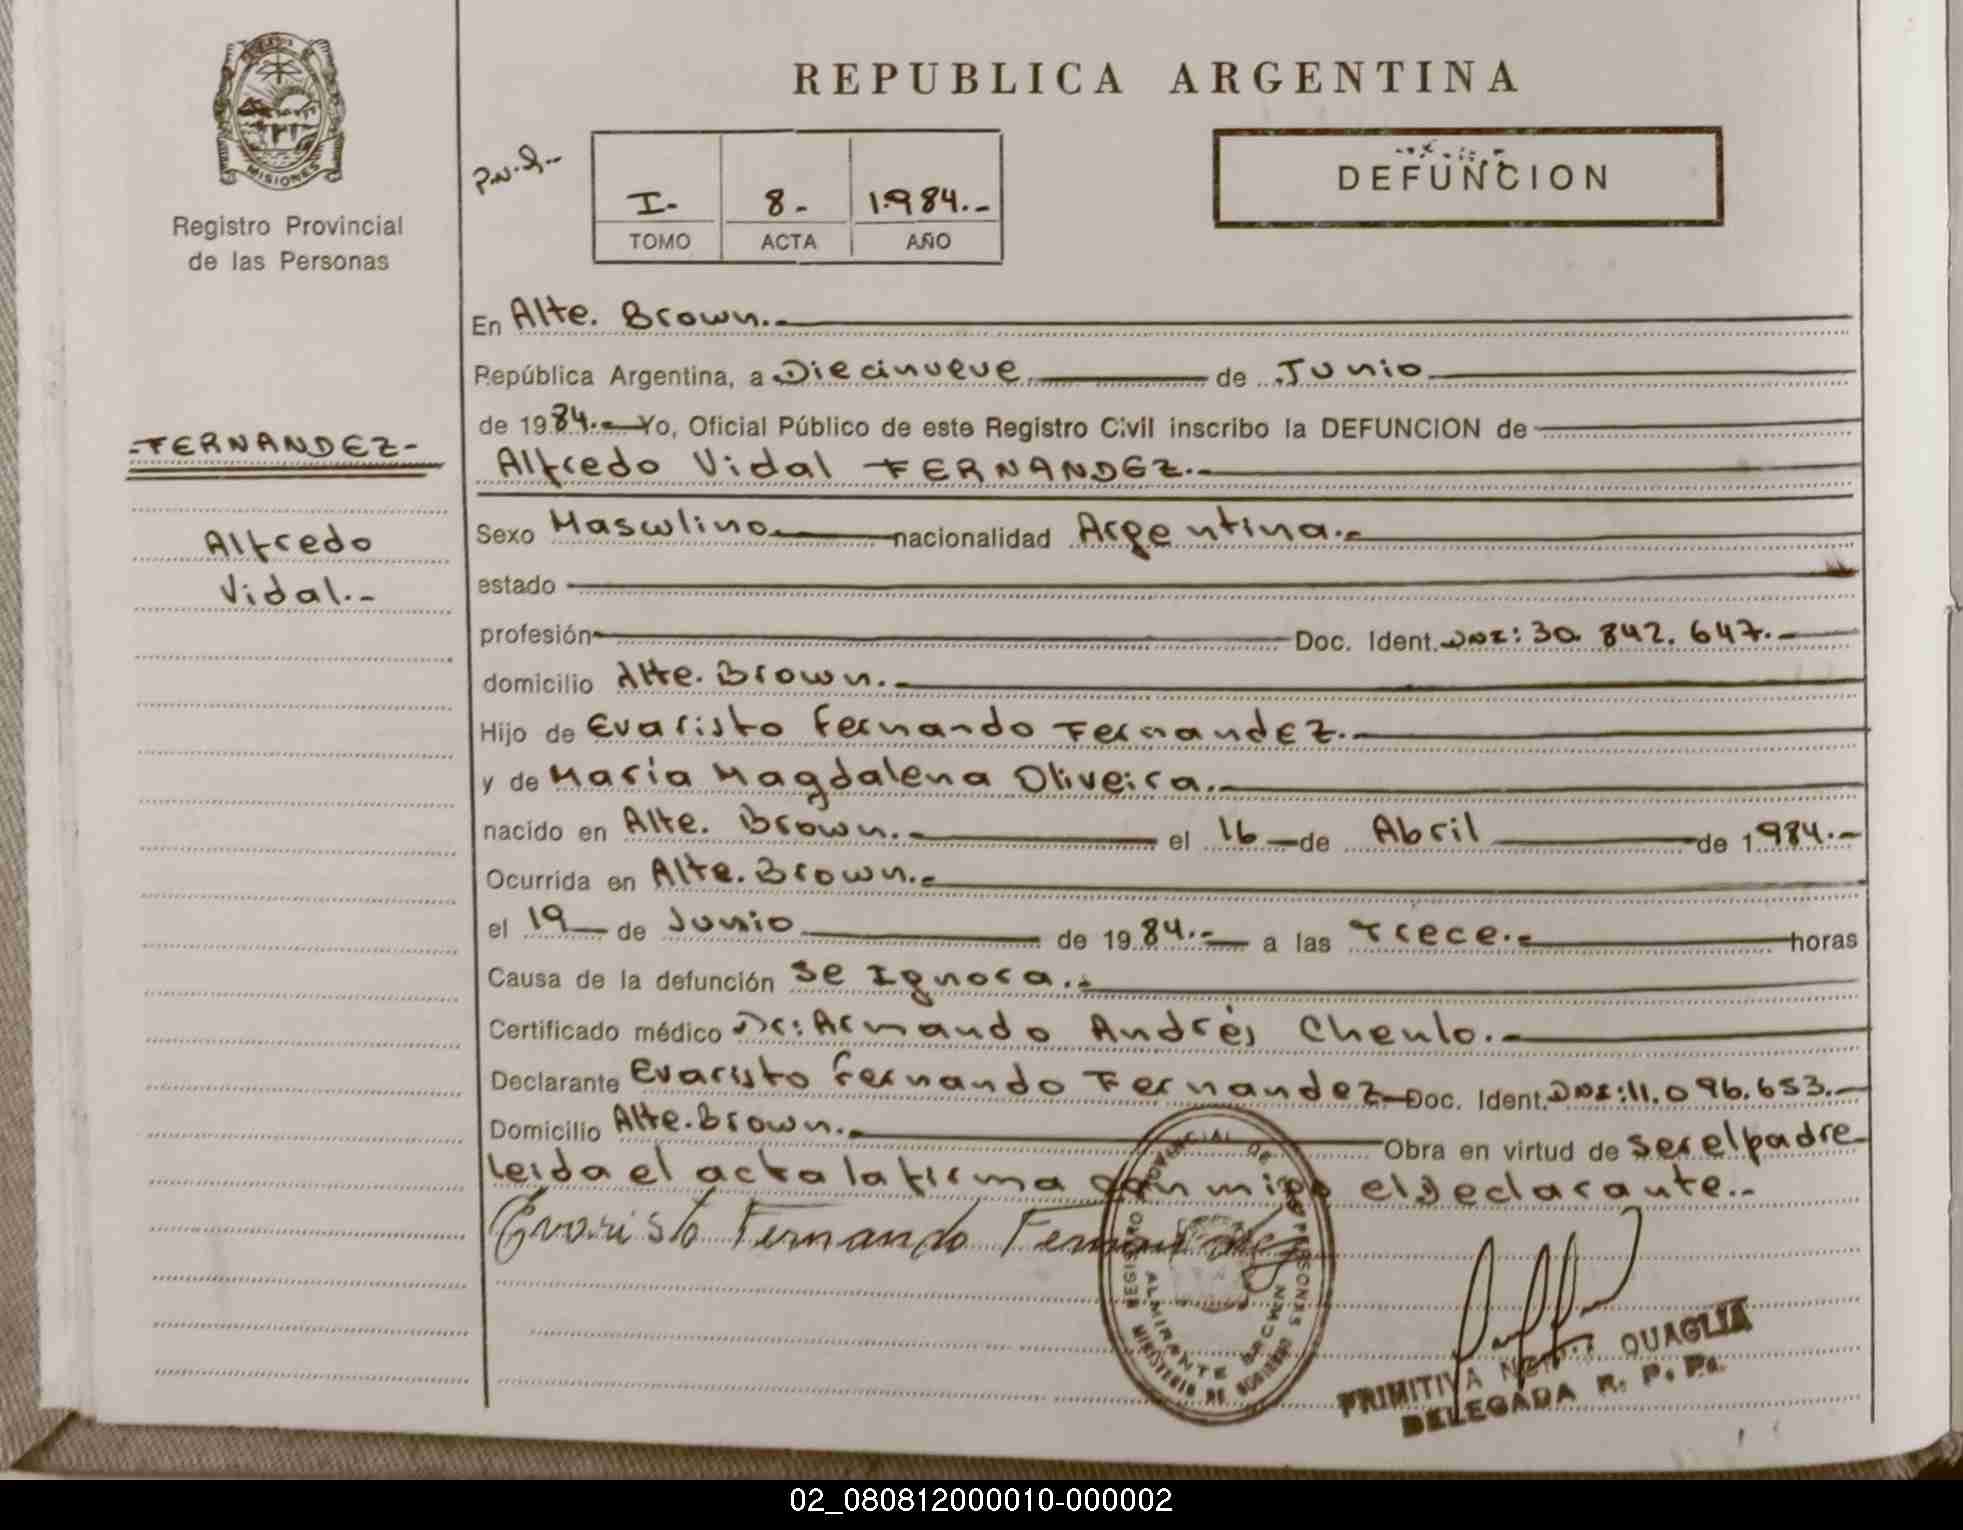 REPUBLICA ARGENTINA
MISIONES
Registro Provincial
de las Personas
P.N.Q.--
I- 8- 1.984.-
TOMO ACTA AÑO
DEFUNCION
-FERNANDEZ-
Alfredo
Vidal.-
En Alte. Brown.-
República Argentina, a Diecinueve de Junio
de 1984.- Yo, Oficial Público de este Registro Civil inscribo la DEFUNCION de
Alfredo Vidal FERNANDEZ.-
Sexo Masculino nacionalidad Argentina.-
estado
profesión Doc. Ident. DNI: 30.842.647.-
domicilio Alte. Brown.-
Hijo de Evaristo Fernando Fernandez.-
y de María Magdalena Oliveira.-
nacido en Alte. Brown.- el 16 de Abril de 1984.-
Ocurrida en Alte. Brown.-
el 19 de Junio de 1984.- a las Trece.- horas
Causa de la defunción Se Ignora.-
Certificado médico Dr: Armando Andrés Chenlo.-
Declarante Evaristo Fernando Fernandez Doc. Ident. DNI: 11.096.653.-
Domicilio Alte. Brown.- Obra en virtud de ser el padre
leida el acta la firma con migo el declarante.-
Evaristo Fernando Fernandez
REGISTRO PROVINCIAL DE PERSONAS
ALMIRANTE BROWN
MINISTERIO DE GOBIERNO
PRIMITIVA QUAGLIA
DELEGADA R. P. Ps.
02_080812000010-000002